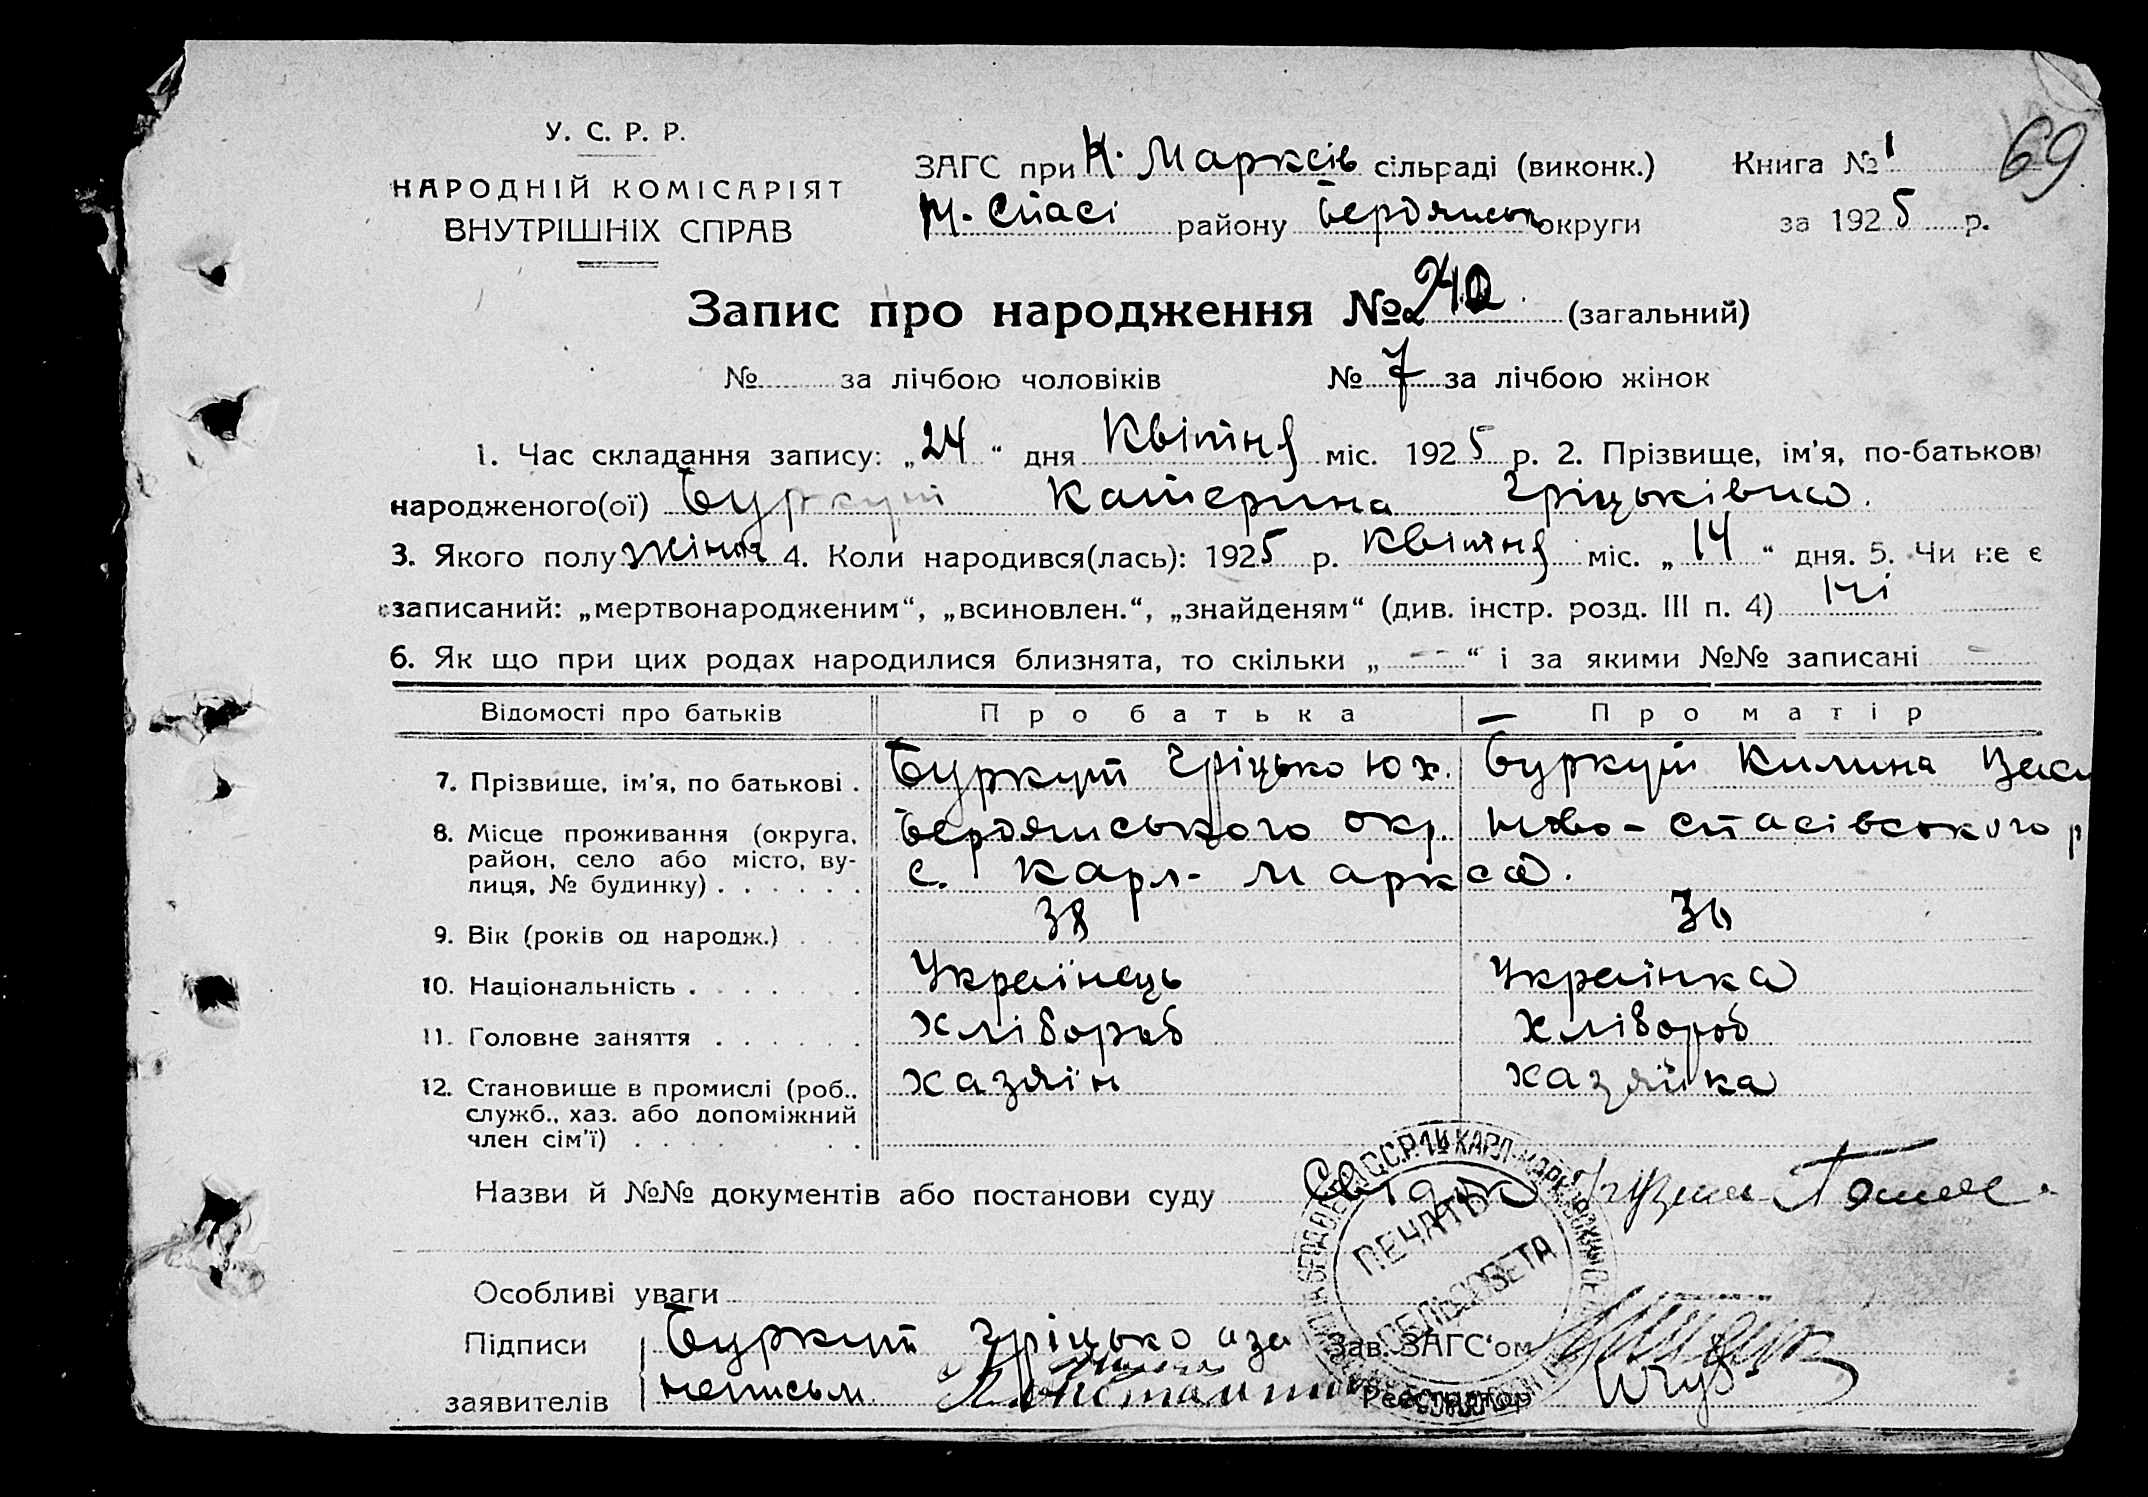 У. С. Р. Р.
НАРОДНІЙ КОМІСАРІЯТ
ВНУТРІШНІХ СПРАВ
ЗАГС при К. Марксів сільраді (виконк.) Книга № 1 69
Н. Спасі району Бердянськ округи за 1925 р.
Запис про народження № 240 (загальний)
№ за лічбою чоловіків № 7 за лічбою жінок
1. Час складання запису: „24“ дня Квітня міс. 1925 р. 2. Прізвище, ім'я, по-батькові
народженого(ої) Буркут Катерина Гріцьківна.
3. Якого полу жіноч 4. Коли народився(лась): 1925 р. Квітня міс. „14“ дня. 5. Чи не є
записаний: „мертвонародженим“, „всиновлен.“, „знайденям“ (див. інстр. розд. III п. 4) ні
6. Як що при цих родах народилися близнята, то скільки „ — “ і за якими №№ записані —
Відомості про батьків Про батька Про матір
7. Прізвище, ім'я, по батькові . Буркут Гріцько Юх. Буркут Килина
8. Місце проживання (округа, район, село або місто, вулиця, № будинку) . . . . . . Бердянського окр. Ново-Спасівського р
с. Карл-Маркса.
9. Вік (років од народж.) . . . 38 36
10. Національність . . . . . . Украінець Украінка
11. Головне заняття . . . . . . Хлібороб Хлібороб
12. Становище в промислі (роб., служб., хаз. або допоміжний член сім'ї) . . . . хазяїн хазяйка
Назви й №№ документів або постанови суду Свідки
ПЕЧАТЬ
СЕЛЬСОВЕТА
Особливі уваги
Підписи Буркут Гріцько а за Зав. ЗАГС'ом
заявителів неписьм. Реєстратор